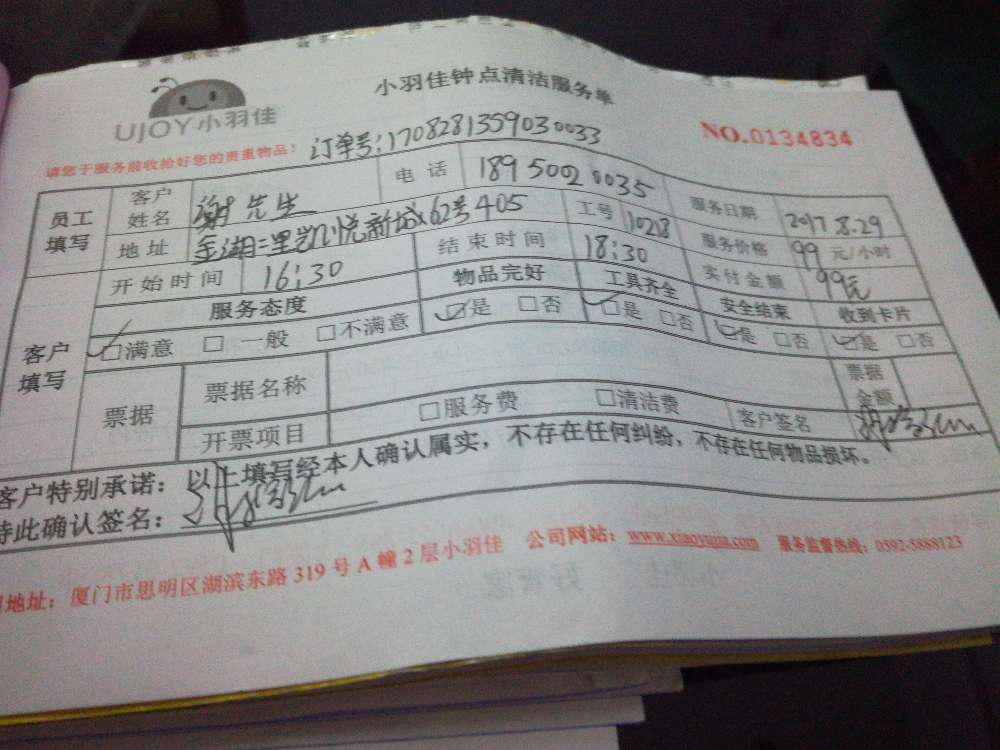 小羽佳钟点清洁服务单
UJOY小羽佳
NO.0134834
请您于服务前收拾好您的贵重物品！ 订单号:1708281359030033
员工填写 客户姓名 谢先生 电话 18950020035 服务日期 2017.8.29
地址 金湖二里凯悦新城62号405 工号 10213 服务价格 99 元/小时
开始时间 16:30 结束时间 18:30 实付金额 99元
客户填写 服务态度 物品完好 工具齐全 安全结束 收到卡片
☑满意 □一般 □不满意 ☑是 □否 ☑是 □否 ☑是 □否 ☑是 □否
票据 票据名称 票据金额
开票项目 □服务费 □清洁费 客户签名
客户特别承诺：以上填写经本人确认属实，不存在任何纠纷，不存在任何物品损坏。
特此确认签名：
地址：厦门市思明区湖滨东路 319 号 A 幢 2 层小羽佳 公司网站：www.xiaoyujia.com 服务监督热线：0592-5888123